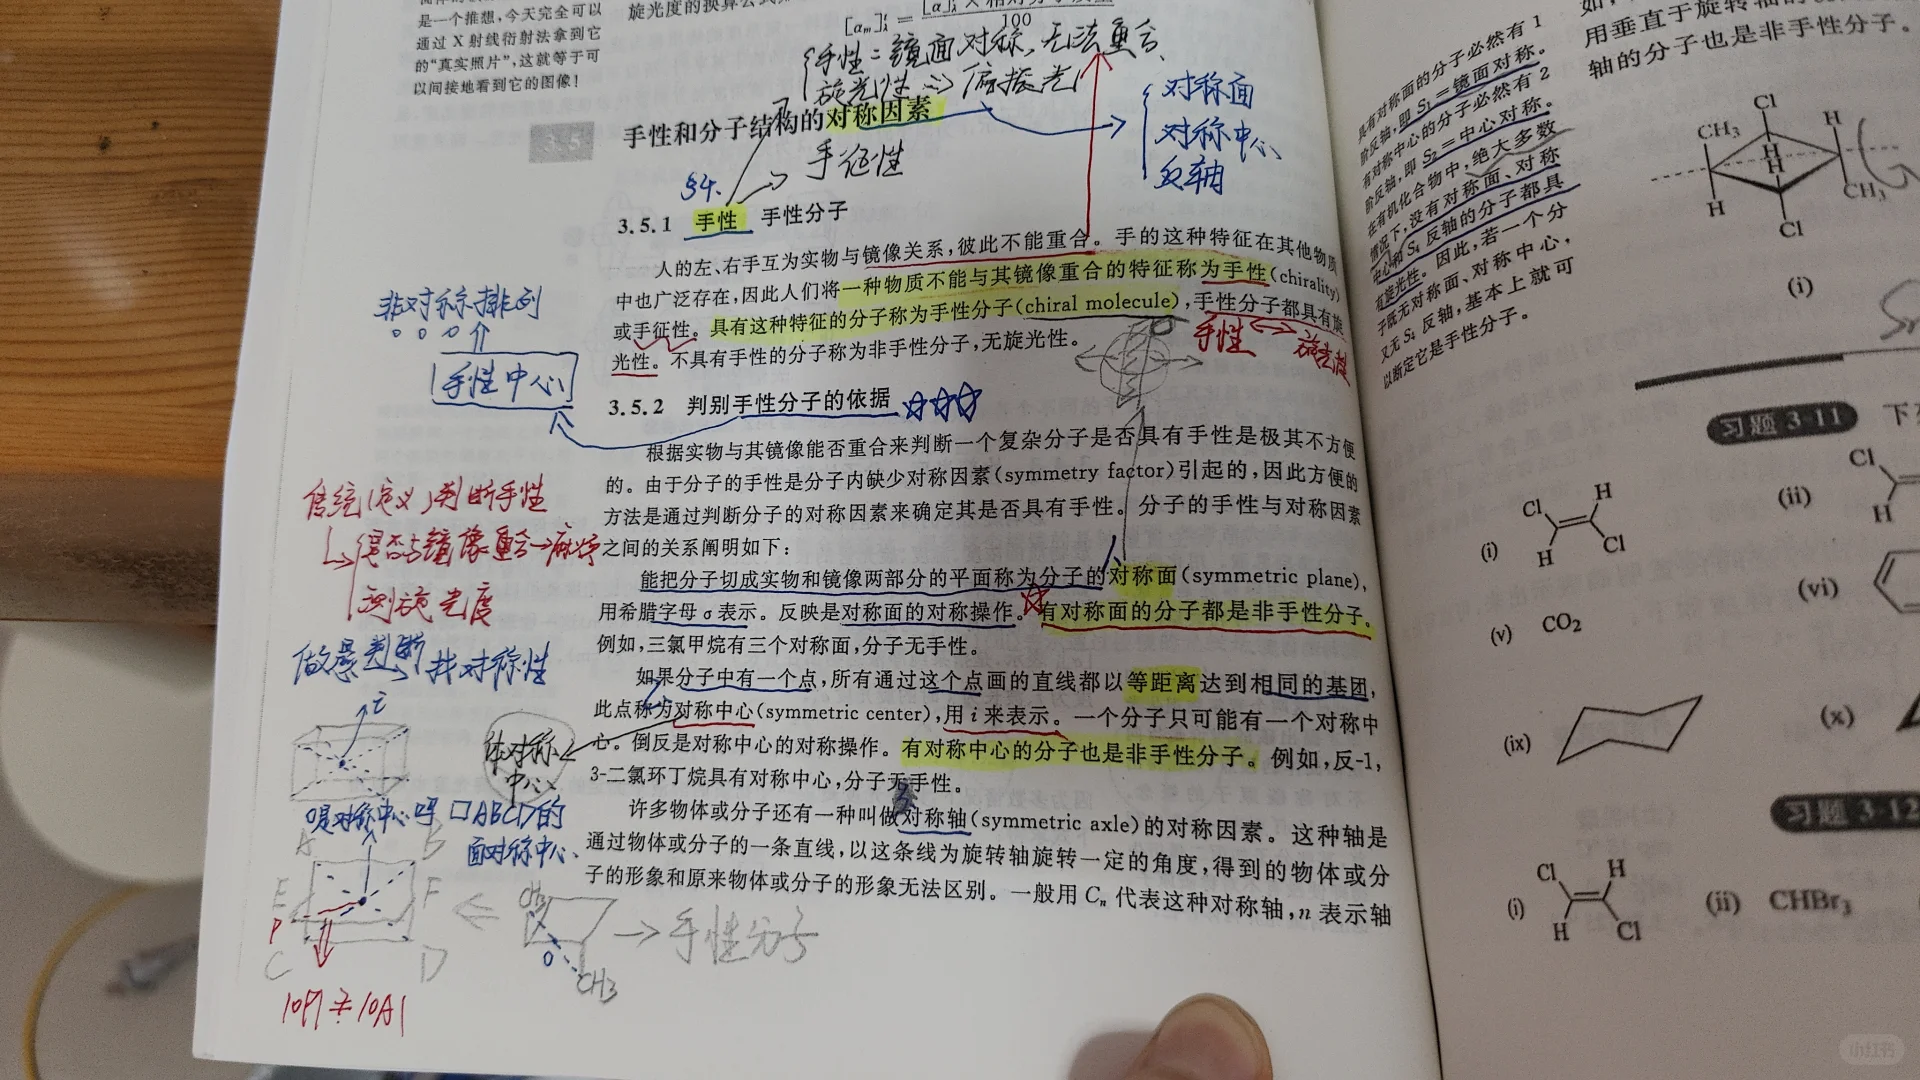 是一个推想，今天完全可以
通过 X 射线衍射法拿到它
的“真实照片”，这就等于可
以间接地看到它的图像！
旋光度的换算公式
100
手性：镜面对称，无法重合
旋光性 => 偏振光
3.5
手性和分子结构的对称因素
手征性
对称面
对称中心
反轴
§4.
3.5.1 手性 手性分子
人的左、右手互为实物与镜像关系，彼此不能重合。手的这种特征在其他物质
中也广泛存在，因此人们将一种物质不能与其镜像重合的特征称为手性(chirality)
或手征性。具有这种特征的分子称为手性分子(chiral molecule)，手性分子都具有旋
光性。不具有手性的分子称为非手性分子，无旋光性。
手性 <-> 旋光度
非对称排列
手性中心
3.5.2 判别手性分子的依据
根据实物与其镜像能否重合来判断一个复杂分子是否具有手性是极其不方便
的。由于分子的手性是分子内缺少对称因素(symmetry factor)引起的，因此方便的
方法是通过判断分子的对称因素来确定其是否具有手性。分子的手性与对称因素
之间的关系阐明如下：
能把分子切成实物和镜像两部分的平面称为分子的对称面(symmetric plane)，
用希腊字母 σ 表示。反映是对称面的对称操作。有对称面的分子都是非手性分子。
例如，三氯甲烷有三个对称面，分子无手性。
如果分子中有一个点，所有通过这个点画的直线都以等距离达到相同的基团，
此点称为对称中心(symmetric center)，用 i 来表示。一个分子只可能有一个对称中
心。倒反是对称中心的对称操作。有对称中心的分子也是非手性分子。例如，反-1，
3-二氯环丁烷具有对称中心，分子无手性。
许多物体或分子还有一种叫做对称轴(symmetric axle)的对称因素。这种轴是
通过物体或分子的一条直线，以这条线为旋转轴旋转一定的角度，得到的物体或分
子的形象和原来物体或分子的形象无法区别。一般用 Cn 代表这种对称轴，n 表示轴
传统(定义)判断手性
是否与镜像重合→麻烦
测旋光度
做题判断 找对称性
i
体对称
中心
是对称中心吗 □ABCD的
面对称中心
A B
E F
P
C D
|OP| ≠ |OA|
CH3
O
CH3
→ 手性分子
具有对称面的分子必然有 1
阶反轴，即 S1＝镜面对称。
有对称中心的分子必然有 2
阶反轴，即 S2＝中心对称。
在有机化合物中，绝大多数
情况下，没有对称面、对称
中心和 S4 反轴的分子都具
有旋光性。因此，若一个分
子既无对称面、对称中心，
又无 S4 反轴，基本上就可
以断定它是手性分子。
用垂直于旋转轴的
轴的分子也是非手性分子。
Cl
CH3 H
H
H
H CH3
Cl
(i)
习题 3-11 下
(i) Cl H H Cl
(ii) Cl H
(v) CO2
(vi)
(ix)
(x)
习题 3-12
(i) Cl H H Cl
(ii) CHBr3
小红书